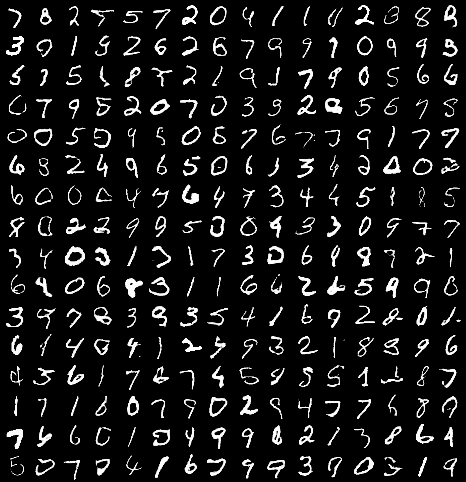 7 8 2 7 5 7 2 0 4 1 1 0 2 8 8 9
3 9 1 9 2 6 2 6 7 9 9 7 0 9 9 3
5 7 5 1 8 2 1 9 1 7 9 0 5 6 6
0 7 9 5 2 0 7 0 3 9 2 0 5 6 7 8
0 0 5 5 9 5 0 8 7 6 7 7 9 1 7 7
6 8 2 4 9 6 5 0 6 1 3 4 2 0 0 2
6 0 0 0 4 7 6 4 7 3 4 4 5 1 1 5
8 0 2 2 9 9 5 3 0 9 3 3 0 9 7 7
3 4 0 3 1 7 1 7 3 0 6 9 8 7 2 1
6 9 0 6 8 3 1 1 6 6 2 6 5 9 9 8
3 9 7 8 3 9 3 5 4 1 6 9 2 8 0 1
6 1 4 0 4 1 2 5 9 3 2 1 8 3 9 6
4 5 6 1 7 6 7 4 5 8 8 5 1 8 7
1 7 1 6 0 7 9 0 2 9 4 7 7 5 8 9
7 6 6 0 1 5 4 9 9 8 2 1 3 8 6 9
5 0 7 7 4 1 6 7 9 9 3 9 0 3 1 9